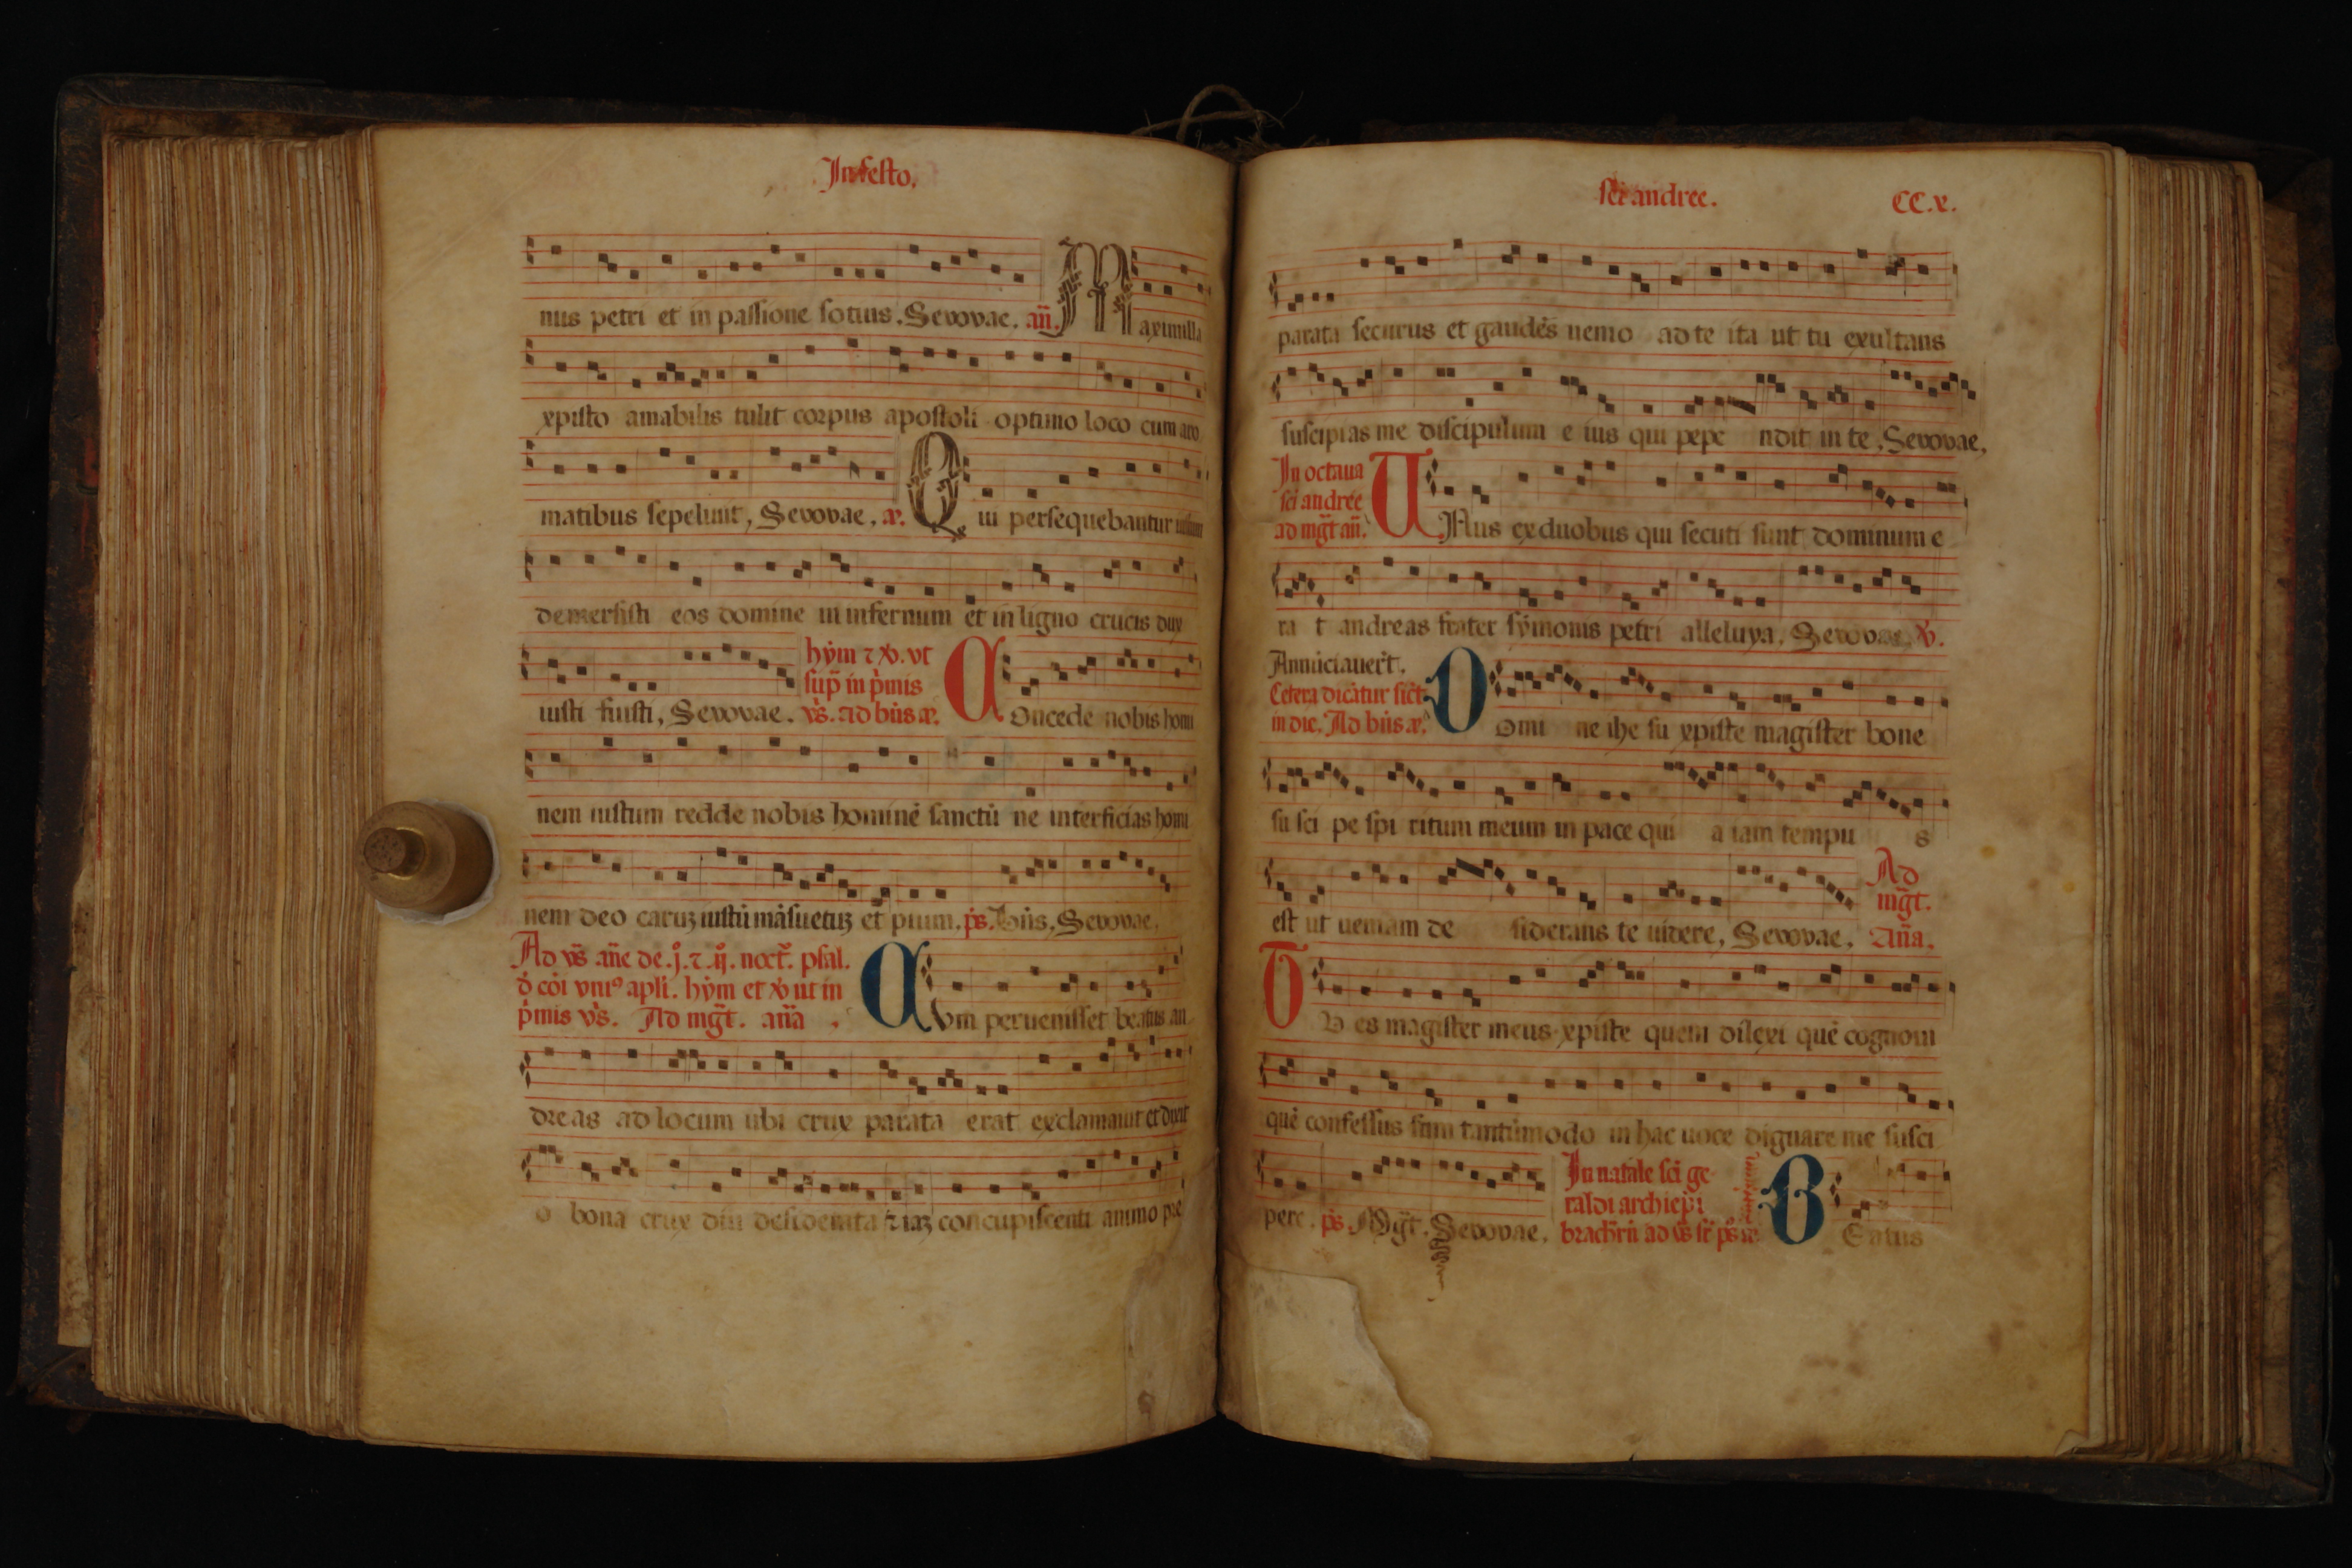 In festo.
nus petri et in passione sotius. Seuouae. an̄. M
aximilla
xpisto amabilis tulit corpus apostoli optimo loco cum aro
matibus sepeliuit, Seuouae, æ. Q ui persequebantur iustum
demersisti eos domine in infernum et in ligno crucis dux
hẏm ⁊ xv. vt
sup̄ in p̀mis
iusti fuisti, Seuouae. vs̄. ad bn̄s æ. C Oncede nobis homi
nem iustum redde nobis hominē sanctū ne interficias homi
nem deo caruꝫ iustū māsuetuꝫ et pium. ps̄. Bn̄s, Seuouae.
Ad vs̄ an̄e de .j. ⁊ .ij. noct̄. psal.
d̄ cōi vniꝰ apli. hẏm et xv ut in
p̀mis vs̄. Ad mḡt. an̄a . C
Vm peruenisset beatus an
dreas ad locum ubi crux parata erat exclamauit et dixit
o bona crux diu desiderata ⁊ iaꝫ concupiscenti animo pre
sc̄i andree. CC.x.
parata securus et gaudēs uemo ad te ita ut tu exultans
suscipias me discipulum e ius qui pepe ndit in te. Seuouae,
In octaua
sc̄i andree
ad mḡt an̄. U Nus ex duobus qui secuti sunt dominum e
ra t andreas frater sẏmonis petri alleluya. Seuouae, xv.
Annūciauer̄t.
Cetera dicātur sic̄t
in die. Ad bn̄s æ. D
omi ne ihe su xpiste magister bone
su sci pe spi ritum meum in pace qui a iam tempu s
Ad
mḡt.
est ut ueniam de siderans te uidere, Seuouae, an̄a.
T V es magister meus xpiste quem dilexi quē cognoui
quē confessus sum tantūmodo in hac uoce dignare me susci
In natale sc̄i ge
raldi archiep̄i
pere. ps̄ Mḡt. Seuouae. brachr̄n̄ ad vs̄ sr̄ ps̄ æ. B Eatus